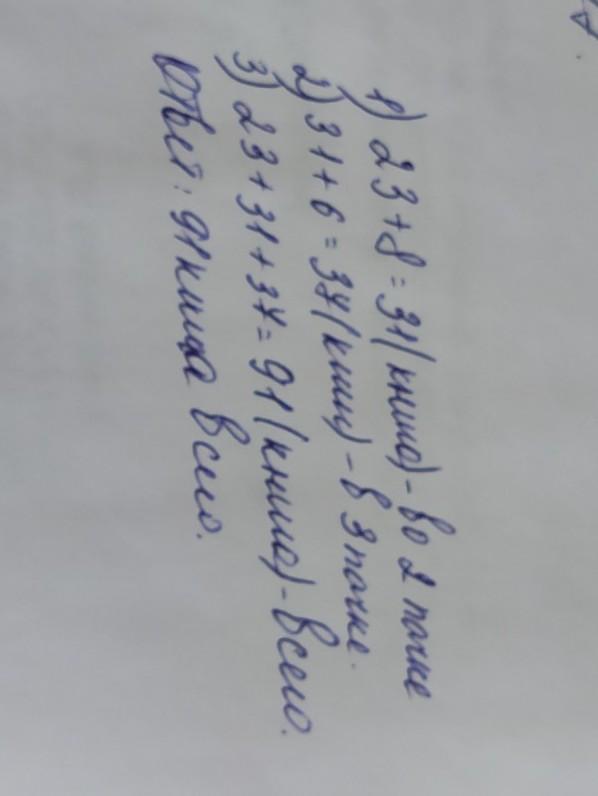 1) 23+8=31(книга)-во 2 пачке
2) 31+6=37(книг)-в 3 пачке.
3) 23+31+37=91(книга)-всего.
Ответ: 91 книга всего.